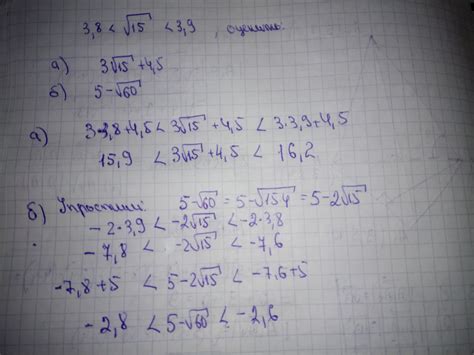 3,8 < √15 < 3,9, оценить:
а) 3√15 + 4,5
б) 5 - √60
а) 3·3,8 + 4,5 < 3√15 + 4,5 < 3·3,9 + 4,5
15,9 < 3√15 + 4,5 < 16,2
б) Упростим: 5 - √60 = 5 - √15·4 = 5 - 2√15
- 2·3,9 < -2√15 < -2·3,8
- 7,8 < -2√15 < -7,6
-7,8 + 5 < 5 - 2√15 < -7,6 + 5
- 2,8 < 5 - √60 < -2,6